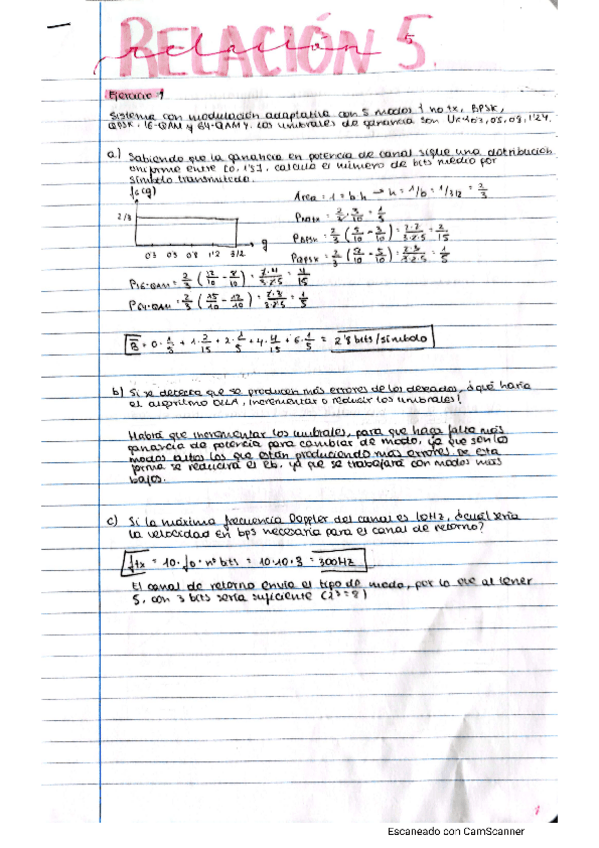 RELACIÓN 5.
Ejercicio 1
Sistema con modulación adaptativa con 5 modos { no tx, BPSK,
QPSK, 16-QAM y 64-QAM}. Los umbrales de ganancia son 0'3, 0'5, 0'8, 1'2}.
a) Sabiendo que la ganancia en potencia de canal sigue una distribución
uniforme entre [0, 1'5], calcula el número de bits medio por
símbolo transmitido.
fG(g)
Area = 1 = b·h → h = 1/b = 1/3/2 = 2/3
2/3
0'3 0'5 0'8 1'2 3/2 g
= 2/3 · 3/10 = 1/5
PBPSK = 2/3 (5/10 - 3/10) = 2·2/3·2·5 = 2/15
PQPSK = 2/3 (8/10 - 5/10) = 2·3/3·2·5 = 1/5
P16-QAM = 2/3 (12/10 - 8/10) = 2·4/3·2·5 = 4/15
P64-QAM = 2/3 (15/10 - 12/10) = 2·3/3·2·5 = 1/5
B = 0·1/5 + 1·2/15 + 2·1/5 + 4·4/15 + 6·1/5 = 2'8 bits/símbolo
b) Si se detecta que se producen más errores de los deseados, ¿qué haría
el algoritmo OLLA, incrementar o reducir los umbrales?
Habrá que incrementar los umbrales, para que haga falta más
ganancia de potencia para cambiar de modo, ya que son los
modos altos los que están produciendo más errores. De esta
forma se reducirá el, ya que se trabajará con modos más
bajos.
c) Si la máxima frecuencia Doppler del canal es 10Hz, ¿cuál sería
la velocidad en bps necesaria para el canal de retorno?
ftx = 10·fD·nº bits = 10·10·3 = 300Hz
El canal de retorno envía el tipo de modo, por lo que al tener
5, con 3 bits sería suficiente (2³=8)
1
Escaneado con CamScanner